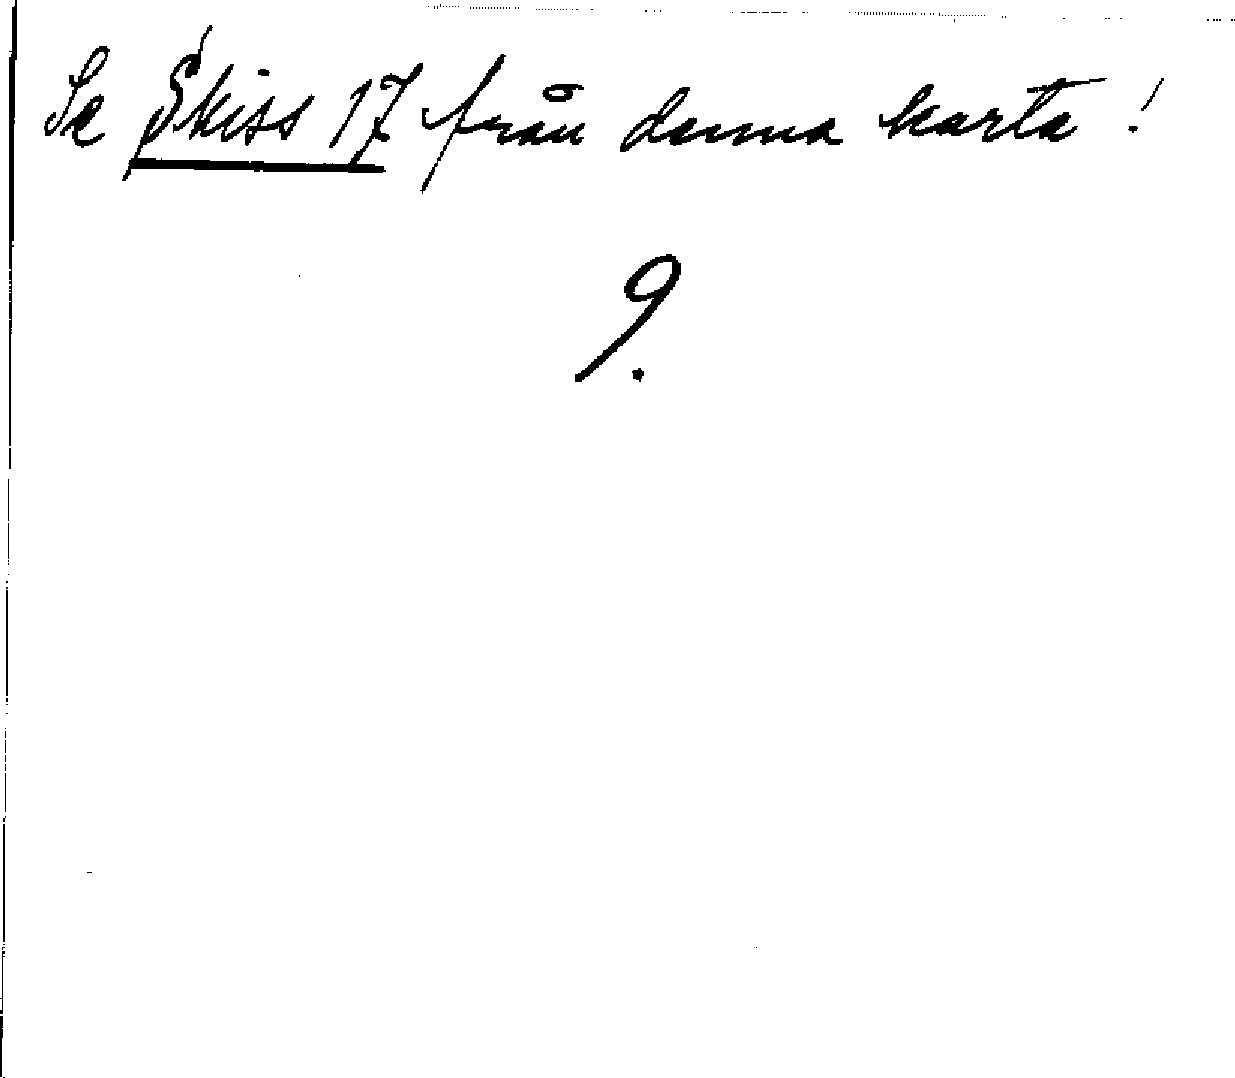 Se Skiss 17 från denna karta!
9.